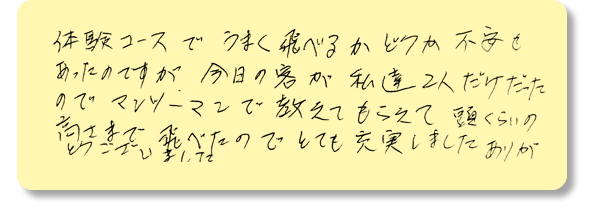 体験コースで うまく飛べるかどうか 不安も
あったのですが 今日の客が 私達2人だけだった
ので マンツーマンで教えてもらえて 頭くらいの
高さまで 飛べたので とても充実しました ありが
とうございました